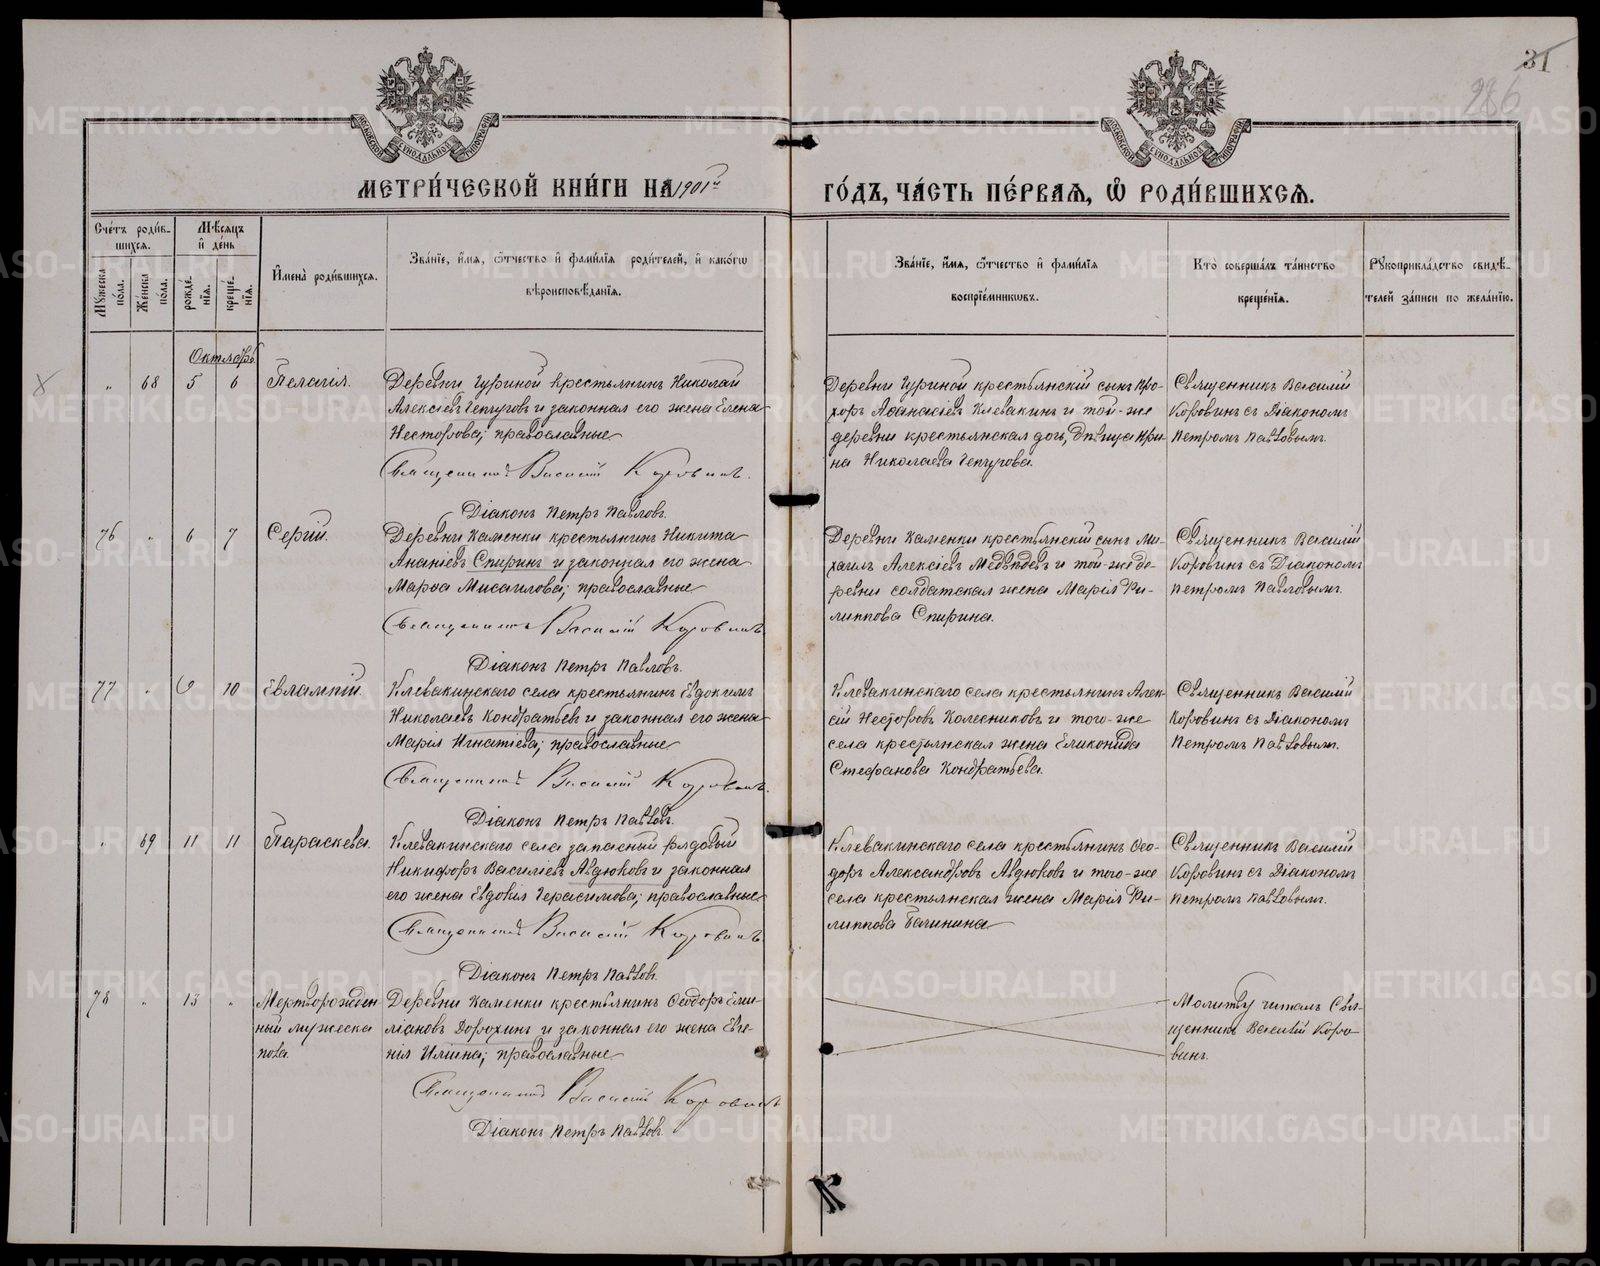 31
286
МОСКОВСКОЙ СѴНОДАЛЬНОЙ ТИПОГРАФІИ
МОСКОВСКОЙ СѴНОДАЛЬНОЙ ТИПОГРАФІИ
МЕТРИ́ЧЕСКОЙ КНИ́ГИ НА 1901й
ГО́ДЪ, ЧА́СТЬ ПЕ́РВАЯ, Ѡ҆ РОДИ́ВШИХСЯ.
Сче́тъ роди́в-
шихся.
Мꙋ́жеска по́ла.
Же́нска по́ла.
Мѣ́сяцъ и҆ де́нь
рожде́-нїя.
креще́-нїя.
И҆мена̀ роди́вшихся.
Зва́нїе, и҆́мя, ѻ҆́тчество и҆ фами́лїя роди́телей, и҆ како́гѡ
вѣроисповѣ́данїя.
Зва́нїе, и҆́мя, ѻ҆́тчество и҆ фами́лїя
воспрїе́мникѡвъ.
Кто̀ соверша́лъ та́инство
креще́нїя.
Рꙋкоприкла́дство свидѣ́-
телей за́писи по жела́нїю.
Октябрь
" 68 5 6 Пелагія.
Деревни Гуриной крестьянинъ Николай
Алексіевъ Чепчуговъ и законная его жена Елена
Несторова; православные
Священникъ Василій Коровинъ.
Діаконъ Петръ Павловъ.
Деревни Гуриной крестьянскій сынъ Про-
хоръ Аѳанасіевъ Клевакинъ и той-же
деревни крестьянская дочь, дѣвица Ири-
на Николаева Чепчугова.
Священникъ Василій
Коровинъ съ Діакономъ
Петромъ Павловымъ.
76 " 6 7 Сергій.
Деревни Каменки крестьянинъ Никита
Ананіевъ Спиринъ и законная его жена
Марѳа Мисаилова; православные
Священникъ Василій Коровинъ.
Діаконъ Петръ Павловъ.
Деревни Каменки крестьянскій сынъ Ми-
хаилъ Алексіевъ Медвѣдевъ и той-же де-
ревни солдатская жена Марія Фи-
липпова Спирина.
Священникъ Василій
Коровинъ съ Діакономъ
Петромъ Павловымъ.
77 " 6 10 Евлампій.
Клевакинскаго села крестьянинъ Евдокимъ
Николаевъ Кондратьевъ и законная его жена
Марія Игнатіева; православные
Священникъ Василій Коровинъ.
Діаконъ Петръ Павловъ.
Клевакинскаго села крестьянинъ Алек-
сій Несторовъ Колесниковъ и того-же
села крестьянская жена Еликонида
Стефанова Кондратьева.
Священникъ Василій
Коровинъ съ Діакономъ
Петромъ Павловымъ.
" 69 11 11 Параскева.
Клевакинскаго села запасный рядовый
Никифоръ Василіевъ Авдюковъ и законная
его жена Евдокія Герасимова; православные
Священникъ Василій Коровинъ.
Діаконъ Петръ Павловъ.
Клевакинскаго села крестьянинъ Ѳео-
доръ Александровъ Авдюковъ и того-же
села крестьянская жена Марія Фи-
липпова Бачинина
Священникъ Василій
Коровинъ съ Діакономъ
Петромъ Павловымъ.
78 " 13 " Мертворожден-
ный мужеска
пола.
Деревни Каменки крестьянинъ Ѳеодоръ Еми-
ліановъ Дорохинъ и законная его жена Евге-
нія Иліина; православные
Священникъ Василій Коровинъ
Діаконъ Петръ Павловъ.
Молитву читалъ Свя-
щенникъ Василій Коро-
винъ.
METRIKI.GASO-URAL.RU